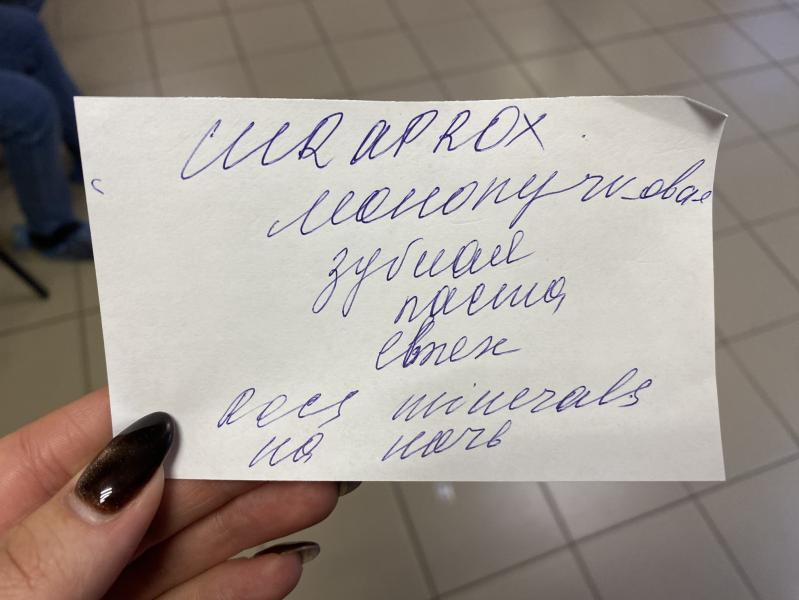 CURAPROX
монопучковая
зубная
паста
Rocs minerals
на ночь